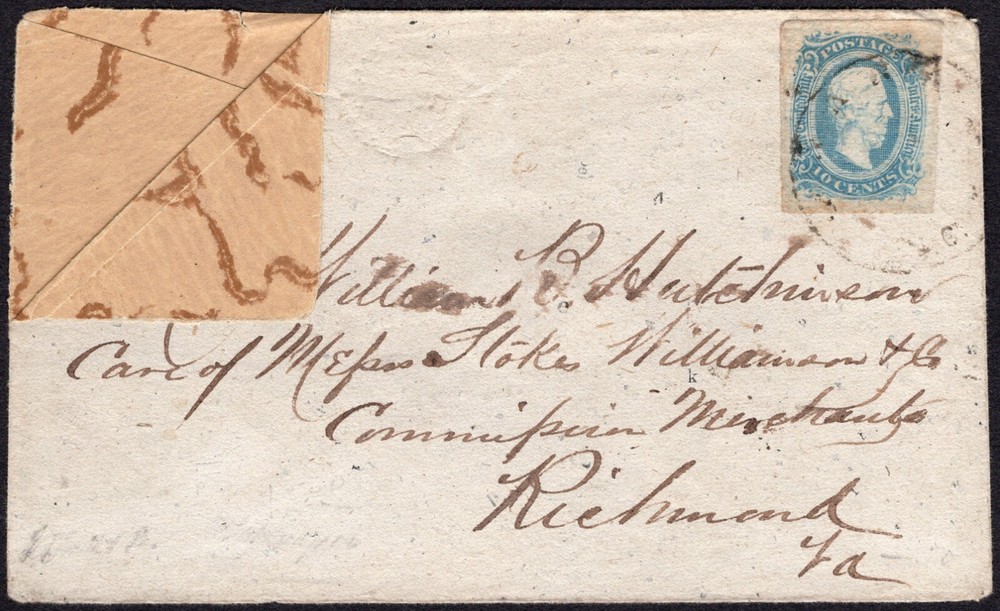 POSTAGE
CONFEDERATE STATES OF AMERICA
10 CENTS
William B. Hutchinson
Care of Messrs Stokes Williamson & Co
Commission Merchants
Richmond
Va